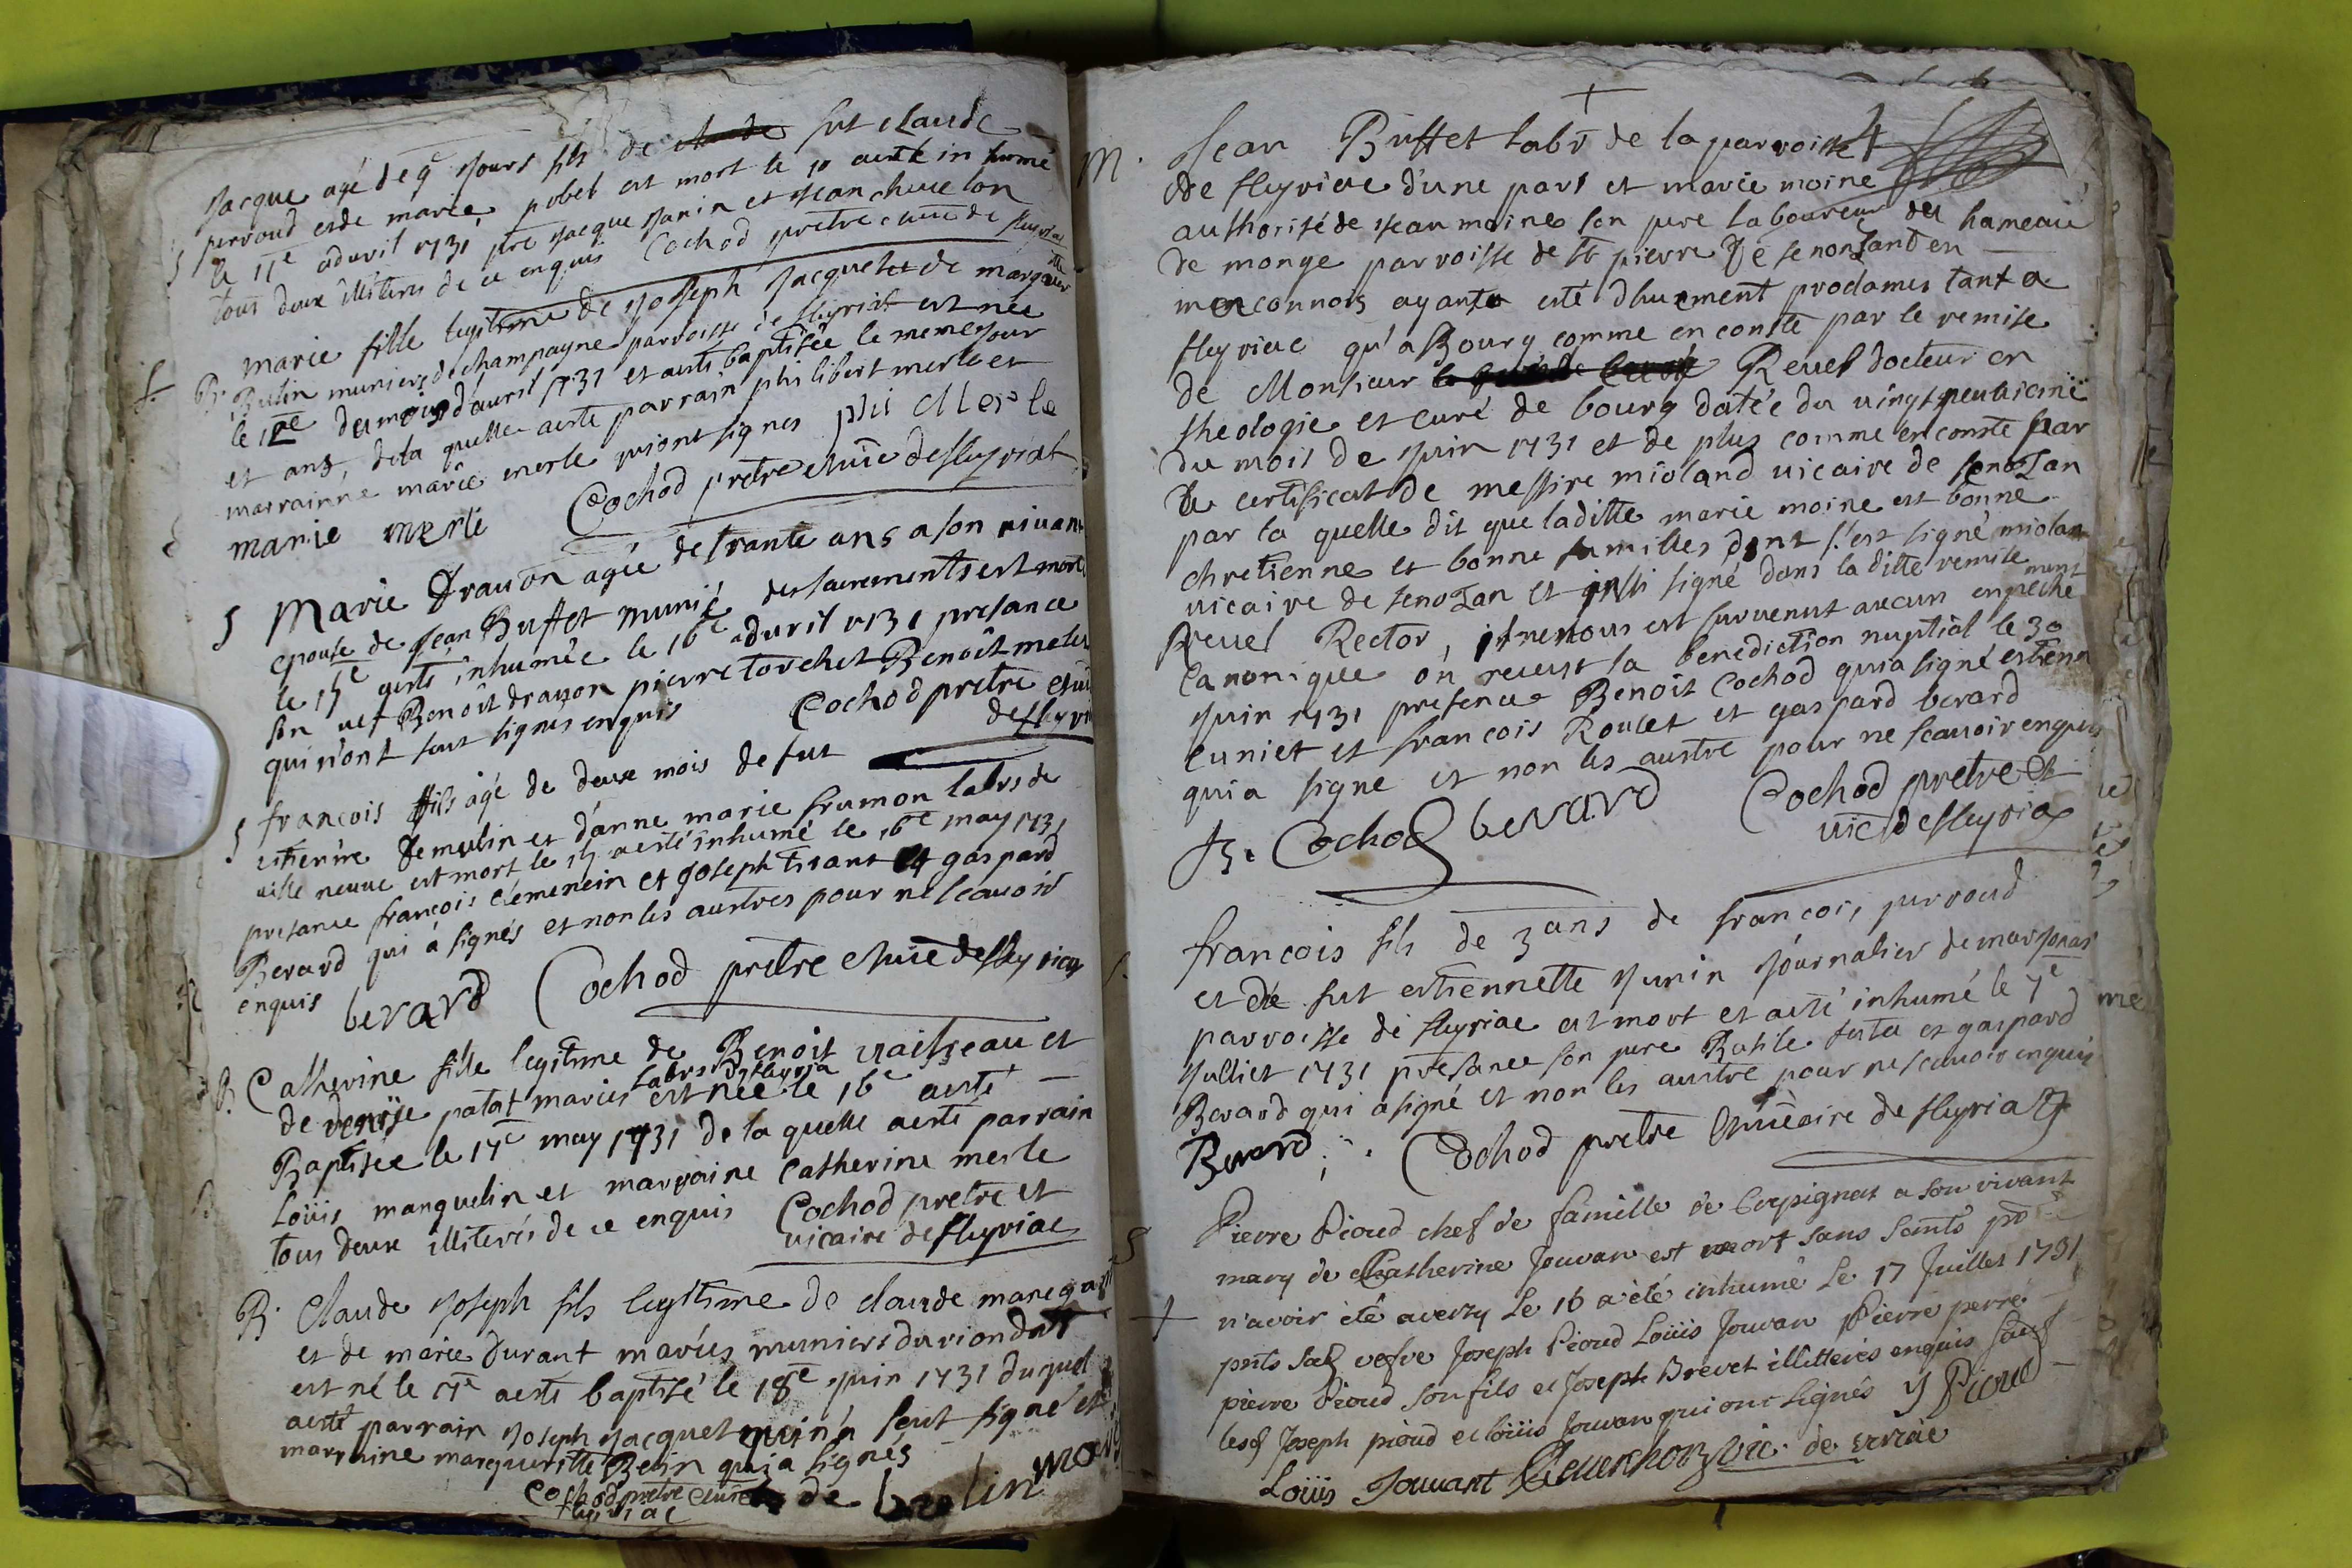 Jacque agé de 9 jours fils de fut claude
S perroud et de marie pobel est mort le 10 aesté inhumé
le 11e ad'avril 1731 pre jacque janin et jean
tous deux illiteres de ce enquis Cochod pretre
Marie fille legitime de joseph Jacquet et de margueritte
B. Bulin munier de champagne parroisse de fleyriat est née
le 12e du mois d'auril 1731 et aesté baptisée le meme jour
et ans, de la quelle aesté parrain philibert merle et
marrainne marie merle qui ont signes phi Merle
marie merle Cochod pretre de fleyriat
S Marie Drauon agée de trante ans a son uiuant
epouse de jean Buffet munie des sacrements est morte
le 15e aesté inhumée le 16e ad'uril 1731 presance
son Benoit drauon pierre torchet Benoit
qui n'ont seut signes enquis Cochod pretre
de
S francois fils agé de deux mois de fut
estienne demulin et d'anne marie frumon labrs de
uille neuue est mort le 15 aesté inhumé le 16e may 1731
presance françois et joseph et gaspard
Berard qui à signés et non les austres pour ne scauoir
enquis
berard Cochod pretre
B. Catherine fille legitime de Benoit uaisseau et
labrs de fleyria
de denise patat mariés est née le 16e aesté
Baptisée le 17e may 1731 de la quelle aesté parrain
Loüis manguelin et marraine Catherine merle
tous deux illiterés de ce enquis Cochod pretre et
uicaire de fleyriac
B. Claude joseph fils legitime de claude
et de marie Durant mariés muniers du
est né le 17e aesté baptisé le 18e juin 1731 duquel
aesté parrain joseph jacquet qui n'a seut signé et
marraine margueritte Belin qui a signés
Cochod pretre
de
M. Jean Buffet labr de la parroisse
de fleyriac d'une part et marie moine
authorisé de jean moine son pere laboureur du hameau
de monge parroisse de St pierre de senozand en
maconnois ayants esté dhuement proclames tant a
fleyriac qu'a Bourg comme en conste par le remise
de Monsieur Reuel docteur en
theologie et curé de bourg datée du uingt neuuieme
du mois de juin 1731 et de plus comme en conste par
le certificat de messire mioland uicaire de senozan
par la quelle dit que laditte marie moine est bonne
chretienne et bonne familles dont s'est signé miolan
uicaire de senozan et signé dans la ditte remise
Reuel Rector, il ne nous est suruenut aucun enpeche
ment
Canonique on receust la benediction nuptial le 30
juin 1731 presence Benoit Cochod qui a signé estienne
cuniet et francois Roulet et gaspard berard
qui a signe et non les austre pour ne scauoir enquis
B. Cochod berard Cochod pretre et
uic de fleyria
francois fils de 3 ans de francois perroud
et de fut estiennette junin journalier de marsonas
parroisse de fleyriac est mort et aesté inhumé le 7e
julliet 1731 presance son pere Basile et gaspard
Berard qui a signé et non les austre pour ne scauoir enquis
Berard Cochod pretre de fleyria
S Pierre Pioud chef de famille de Corpignat a son vivant
mary de Catherine Jouvan est mort sans
n'avoir été averty Le 16 a été inhumé Le 17 Juillet 1731
pnts Joseph Pioud Loüis Jouvan Pierre perré
pierre Pioud son fils et Joseph Brevet illitterés enquis sauf
lesd Joseph pioud et loüis Jouvan qui ont signés J Pioud
Loüis Jouvant vic. de